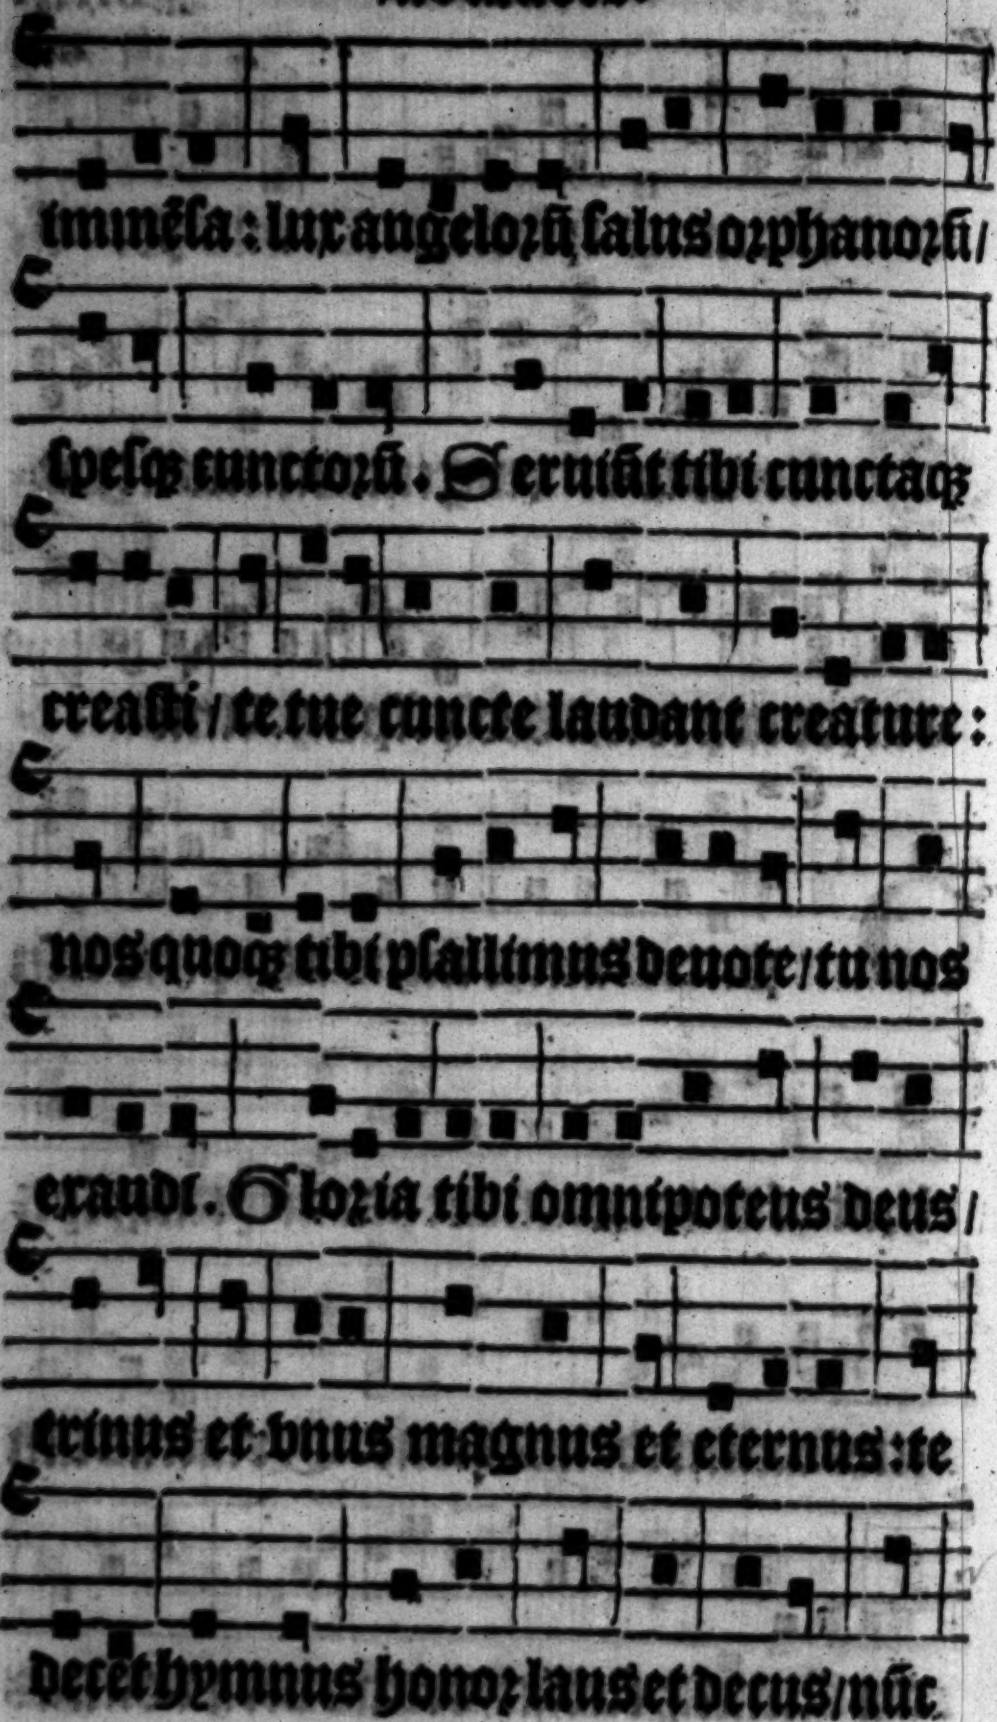 immēsa : lux angelorū salus orphanorū /
spesqꝫ cunctorū . Seruiūt tibi cunctaqꝫ
creasti / te tue cuncte laudant creature :
nos quoqꝫ tibi psallimus deuote / tu nos
exaudi . Gloria tibi omnipotens deus /
trinus et vnus magnus et eternus : te
decet hymnus honor laus et decus / nūc